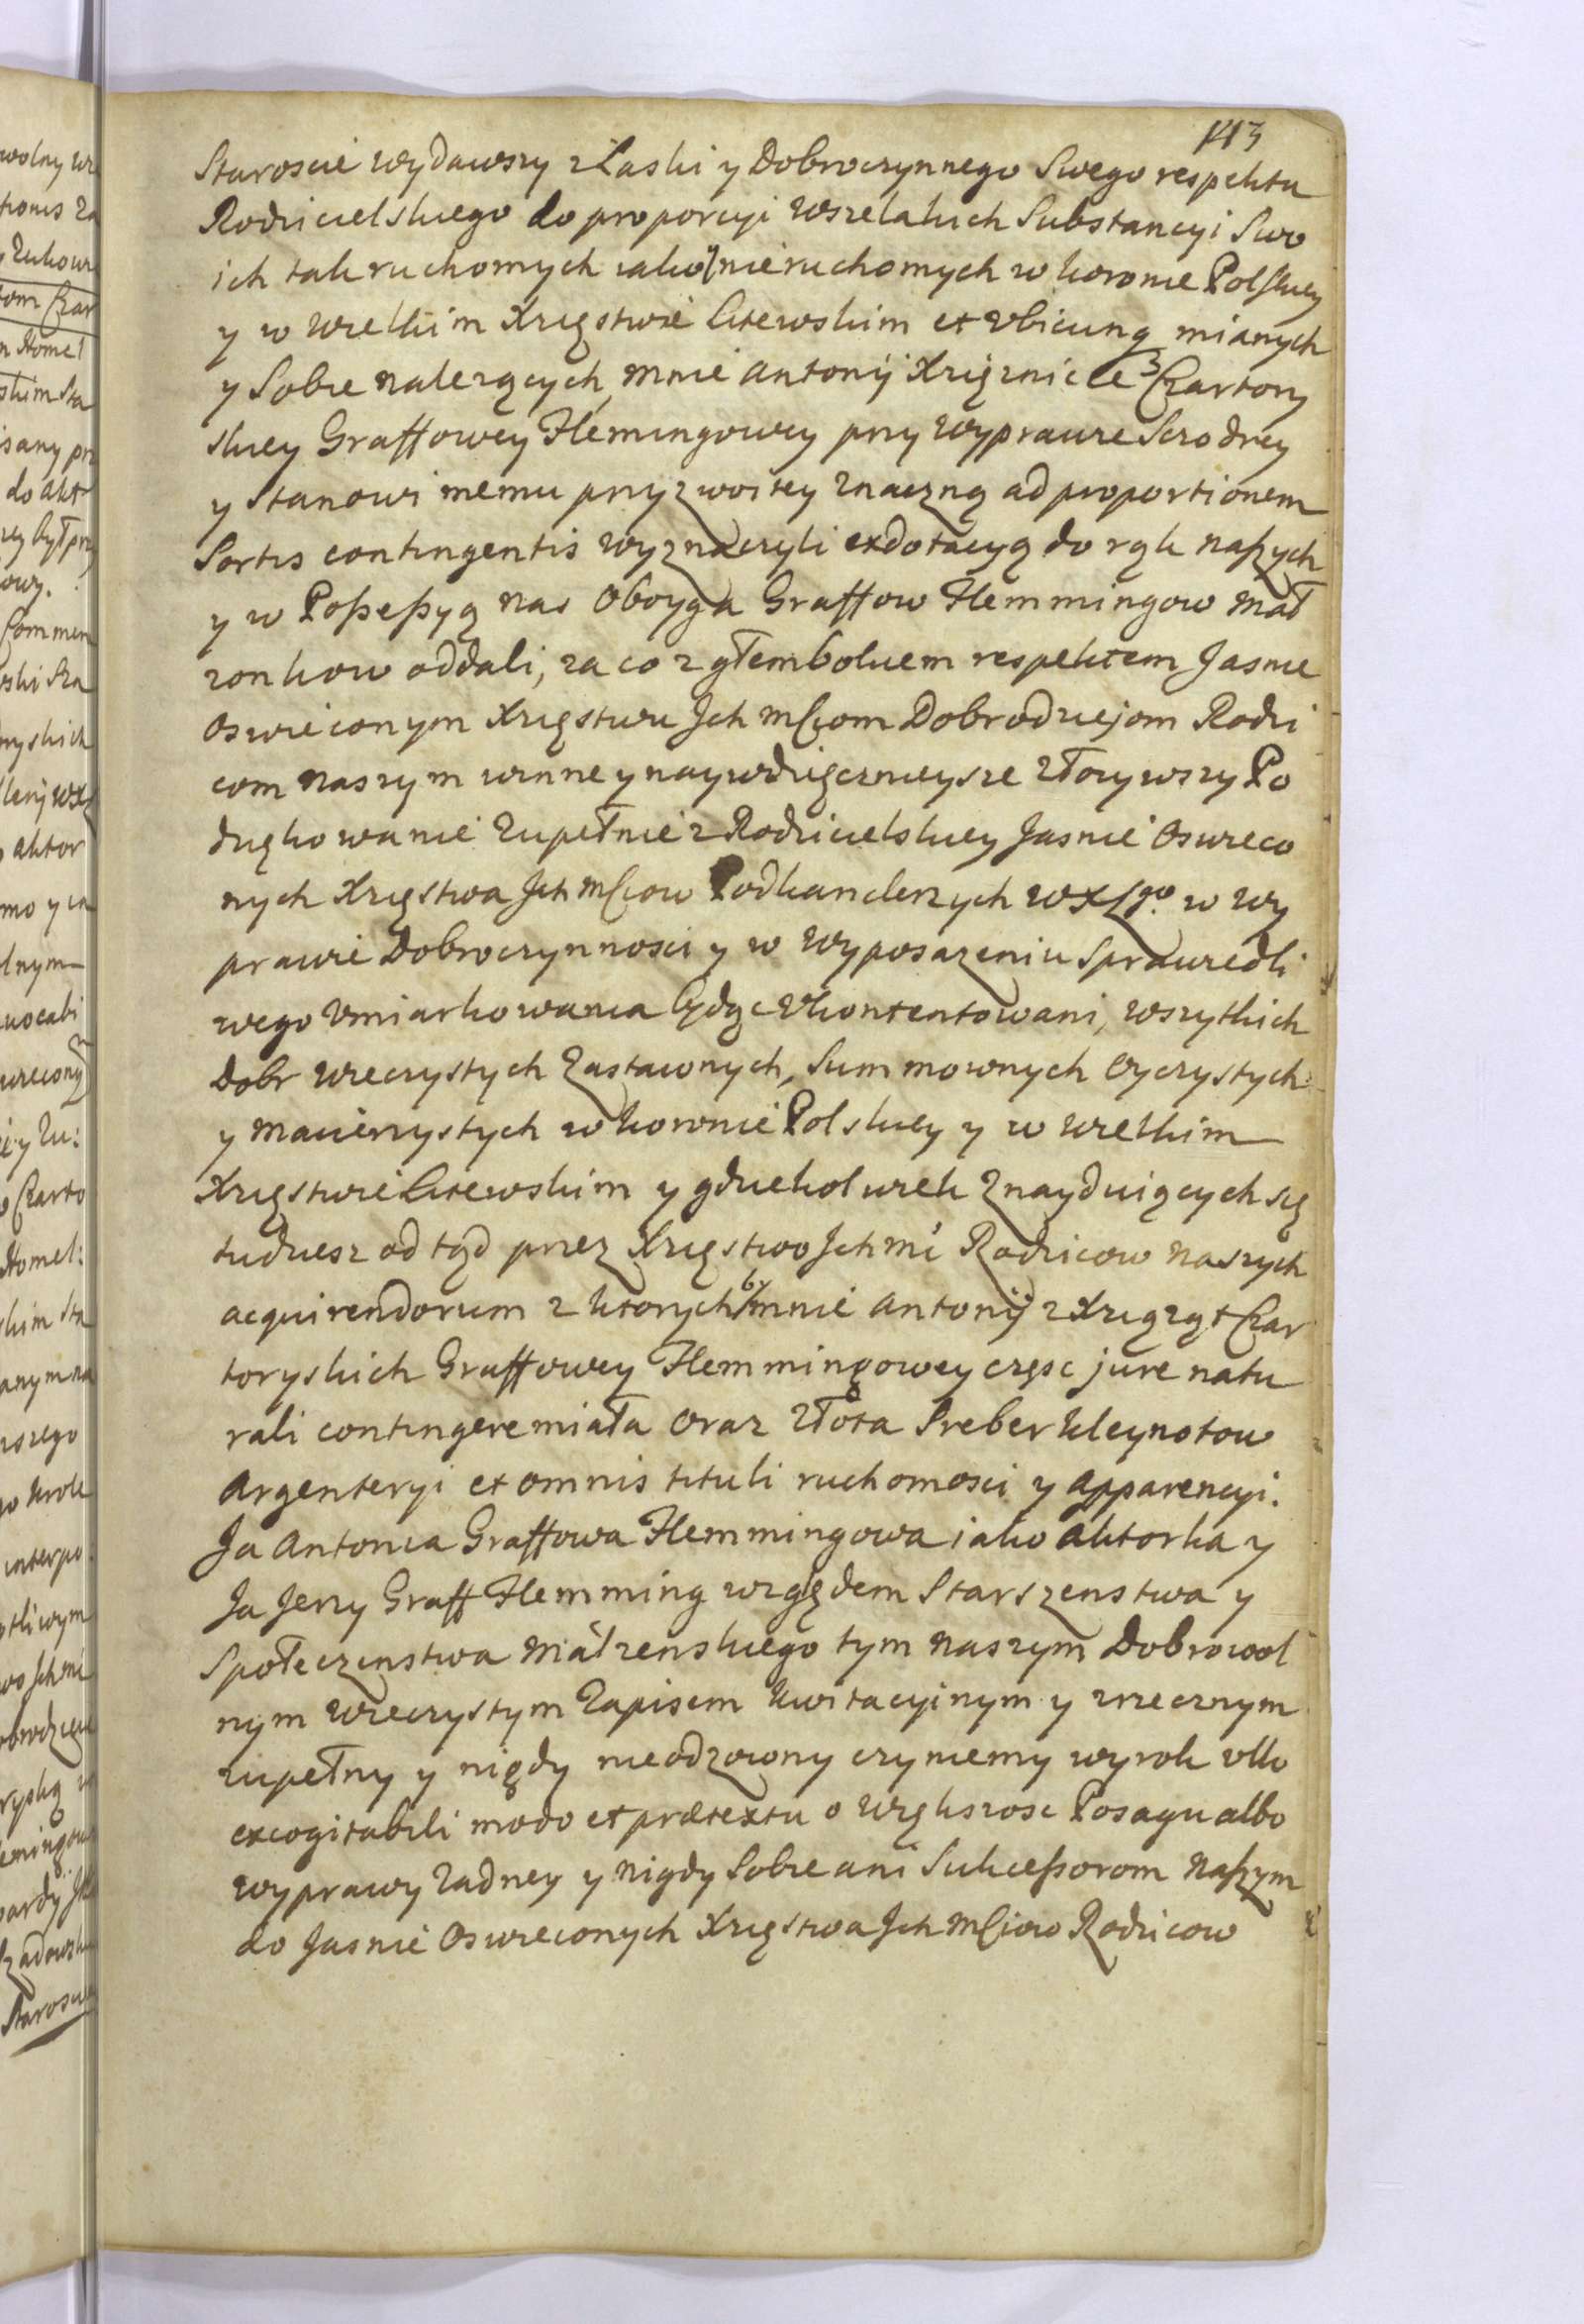 143
Staroscie wydawszy z Łaski y Dobroczynnego Swego respektu
Rodzicielskiego do proporcyi wszelakich Substancyi Swo
ich tak ruchomych iako y nieruchomych w koronie Polskiey
y w wielkim Xięstwie Litewskim et vbicunq mianych
y Sobie nalezących, mnie Antonij Xięznicce Czartory
skiey Graffowey Flemingowey przy wyprawie Sczodrey
y Stanowi memu przyzwoitey znaczną ad proportionem
Sortis contingentis wyznaczyli exdotacyą do rąk naszych
y w Possessyą nas Oboyga Graffow Flemmingow Mał
zonkow oddali, za co z głembokiem respektem Jasnie
Oswieconym Xięstwu Jch mściom Dobrodziejom Rodzi
com naszym winne y naywdzięcznieysze złozywszy Po
dziękowanie zupełnie z Rodzicielskiey Jasnie Oswieco
nych Xięstwa Jch mściow Podkanclerzych WXLgo. w wy
prawie Dobroczynnosci y w wyposazeniu Sprawiedli
wego vmiarkowania będąc vkontentowani, wszytkich
Dobr wieczystych Zastawnych, Summownych oyczystych
y macierzystych w koronie Polskiey y w wielkim
Xięstwie Litewskim y gdziekolwiek znayduiących się
tudziesz od tąd przez Xięstwo Jchmć Rodzicow naszych
acquirendorum z ktorych by mnie Antonij z Xiąząt Czar
toryskich Graffowey Flemmingowey częsc jure natu
rali contingere miała oraz złota Sreber kleynotow
Argenteryi et omnis tituli ruchomosci y apparencyi.
Ja Antonia Graffowa Flemmingowa iako aktorka y
Ja Jerzy Graff Flemming względem Starszenstwa y
Społeczenstwa Małzenskiego tym naszym Dobrowol
nym wieczystym Zapisem kwitacyinym y zrzecznym
zupełny y nigdy nieodzowny czyniemy wyrok vllo
excogitabili modo et prætextu o większosc Posagu albo
wyprawy zadney y nigdy Sobie ani Sukcessorom naszym
do Jasnie Oswieconych Xięstwa Jch mściow Rodzicow